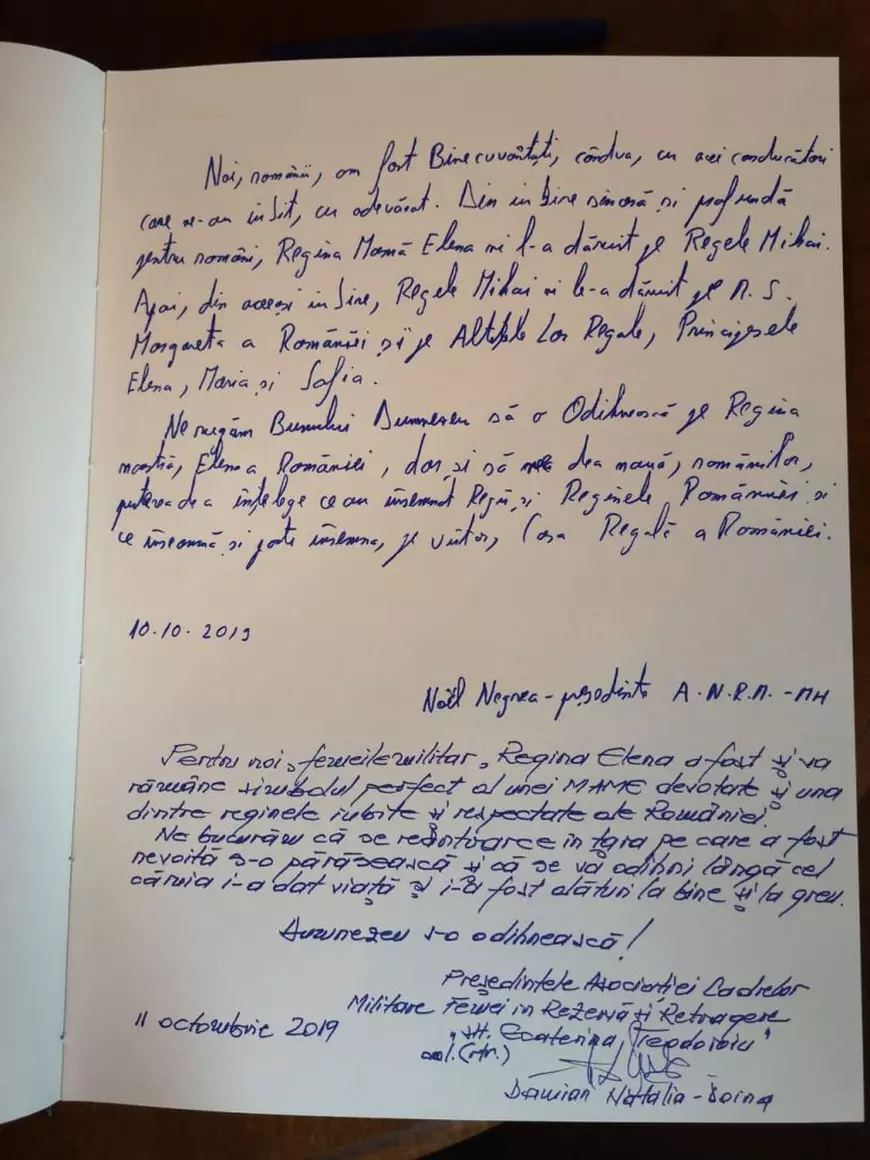 Noi, românii, am fost Binecuvântați, cândva, cu acei conducători
care ne-au iubit, cu adevărat. Din iubire sinceră și profundă
pentru români, Regina Mamă Elena ni l-a dăruit pe Regele Mihai.
Apoi, din aceeași iubire, Regele Mihai ni le-a dăruit pe M. S.
Margareta a României și pe Altețele Lor Regale, Principesele
Elena, Maria și Sofia.
Ne rugăm Bunului Dumnezeu să o Odihnească pe Regina
noastră, Elena a României, dar și să dea nouă, românilor,
puterea de a înțelege ce au însemnat Regii și Reginele României și
ce înseamnă și poate însemna, pe viitor, Casa Regală a României.
10.10.2019
Noël Negrea - președinte A.N.R.M. - MH
Pentru noi, femeile militar, Regina Elena a fost și va
rămâne simbolul perfect al unei MAME devotate și una
dintre reginele iubite și respectate ale României.
Ne bucurăm că se reîntoarce în țara pe care a fost
nevoită s-o părăsească și că se va odihni lângă cel
căruia i-a dat viață și i-a fost alături la bine și la greu.
Dumnezeu s-o odihnească!
Președintele Asociației Cadrelor
Militare Femei în Rezervă și Retragere
11 octombrie 2019
Ecaterina Teodoroiu"
(rtr.)
Damian Natalia-Doina